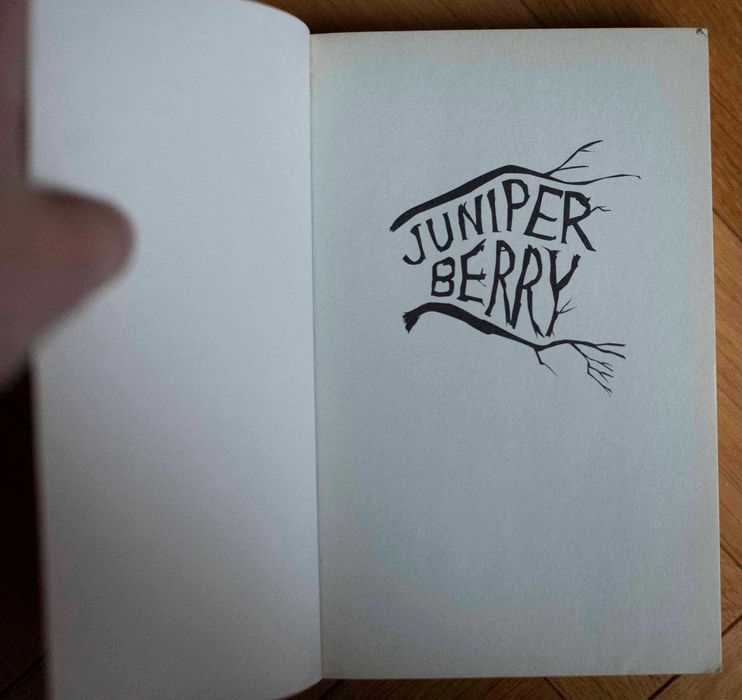 JUNIPER
BERRY